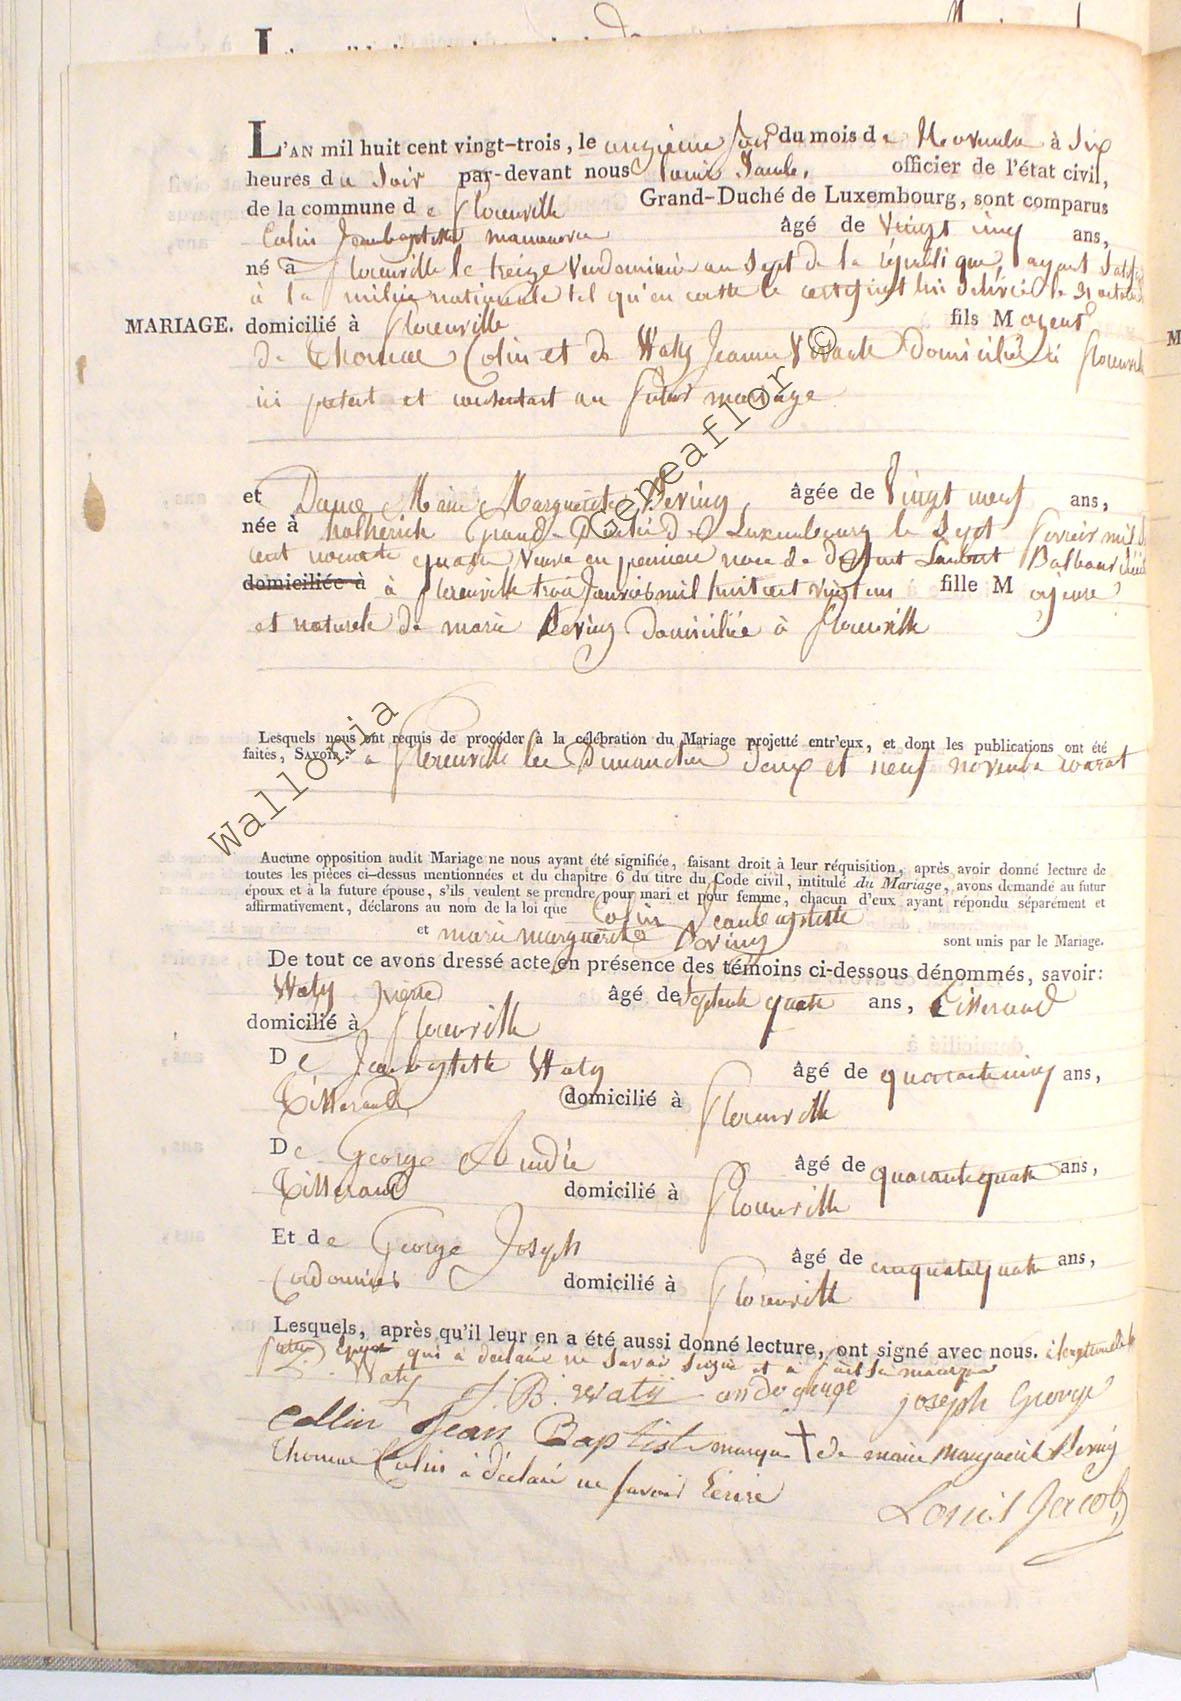 L'AN mil huit cent vingt-trois, le onzieme jour du mois de Novembre à Six
heures du Soir par-devant nous Louis Jacob, officier de l'état civil,
de la commune de florenville Grand-Duché de Luxembourg, sont comparus
Colin Jeanbaptiste manoeuvre âgé de vingt cinq ans,
né à florenville le treize Vendemiaire an Sept de la république, ayant Satisfait
à la milice nationale tel qu'en conste le certificat lui delivré le 31 octobre
MARIAGE. domicilié à florenville fils Majeur
de Thomas Colin et de Waty Jeanne domiciliés à florenville
ici présent et consentant au futur mariage
et Dame Marie Marguerite Deviny âgée de Vingt neuf ans,
née à Grand-Duché de Luxembourg le Sept fevrier mil
cent nonante quatre Veuve en premiere noce de defunt Lambert
domiciliée à à florenville trois Janvier mil huit cent vingt un fille Majeure
et naturele de marie Deviny domiciliée à florenville
Lesquels nous ont requis de procéder à la célébration du Mariage projetté entr'eux, et dont les publications ont été
faites, SAVOIR: à florenville les Dimanches deux et neuf novembre courant
Aucune opposition audit Mariage ne nous ayant été signifiée, faisant droit à leur réquisition, après avoir donné lecture de
toutes les pièces ci-dessus mentionnées et du chapitre 6 du titre du Code civil, intitulé du Mariage, avons demandé au futur
époux et à la future épouse, s'ils veulent se prendre pour mari et pour femme, chacun d'eux ayant répondu séparément et
affirmativement, déclarons au nom de la loi que Colin Jeanbaptiste
et marie marguerite Deviny sont unis par le Mariage.
De tout ce avons dressé acte en présence des témoins ci-dessous dénommés, savoir:
Waty Pierre âgé de Septente quatre ans, Tisserand
domicilié à florenville
De Jeanbaptiste Waty âgé de quarante cinq ans,
Tisserand domicilié à florenville
De George André âgé de quarante quatre ans,
Tisserand domicilié à florenville
Et de George Joseph âgé de cinquante quatre ans,
Cordonnier domicilié à florenville
Lesquels, après qu'il leur en a été aussi donné lecture, ont signé avec nous. à l'exception de la
future Epouse qui à déclaré ne Savoir Signer et à fait Sa marque
P. Waty J. B. Waty andre george joseph George
Collin Jean Baptiste marque de marie marguerite Deviny
Thomas Colin à déclaré ne savoir Ecrire
Louis Jacob
Wallonia Geneaflor ©